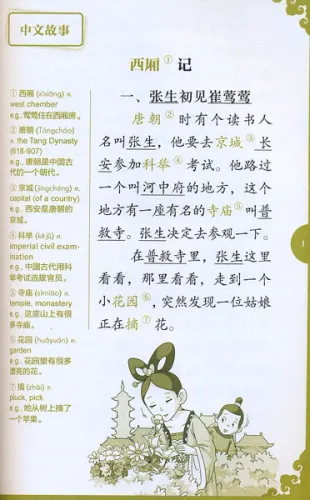 中文故事
西厢①记
一、张生初见崔莺莺
唐朝②时有个读书人
名叫张生，他要去京城③长
安参加科举④考试。他路过
一个叫河中府的地方，这个
地方有一座有名的寺庙⑤叫普
救寺。张生决定去参观一下。
在普救寺里，张生这里
看看，那里看看，走到一个
小花园⑥，突然发现一位姑娘
正在摘⑦花。
① 西厢 (xīxiāng) n.
west chamber
e.g., 莺莺住在西厢房。
② 唐朝 (Tángcháo)
n. the Tang Dynasty
(618-907)
e.g., 唐朝是中国古
代的一个朝代。
③ 京城 (jīngchéng) n.
capital (of a country)
e.g., 西安是唐朝的
京城。
④ 科举 (kējǔ) n.
imperial civil exam-
ination
e.g., 中国古代用科
举考试选拔官员。
⑤ 寺庙 (sìmiào) n.
temple, monastery
e.g., 这座山上有很
多寺庙。
⑥ 花园 (huāyuán) n.
garden
e.g., 花园里有很多
漂亮的花。
⑦ 摘 (zhāi) v.
pluck, pick
e.g., 她从树上摘了
一个苹果。
1